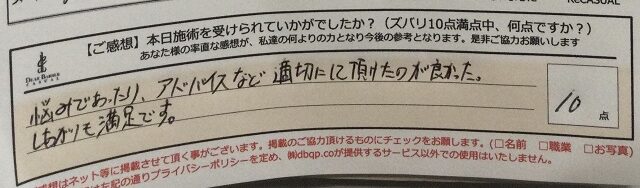 【ご感想】本日施術を受けられていかがでしたか？（ズバリ10点満点中、何点ですか？）
あなた様の率直な感想が、私達の何よりの力となり今後の参考となります。是非ご協力お願いします
悩みであったり、アドバイスなど適切にして頂けたのが良かった。
しあがりも満足です。
10
点
感想はネット等に掲載させて頂く事がございます。掲載のご協力頂けるものにチェックをお願します。（□名前　□職業　□お写真）
左記の通りプライバシーポリシーを定め、㈱dbqp.coが提供するサービス以外での使用はいたしません。